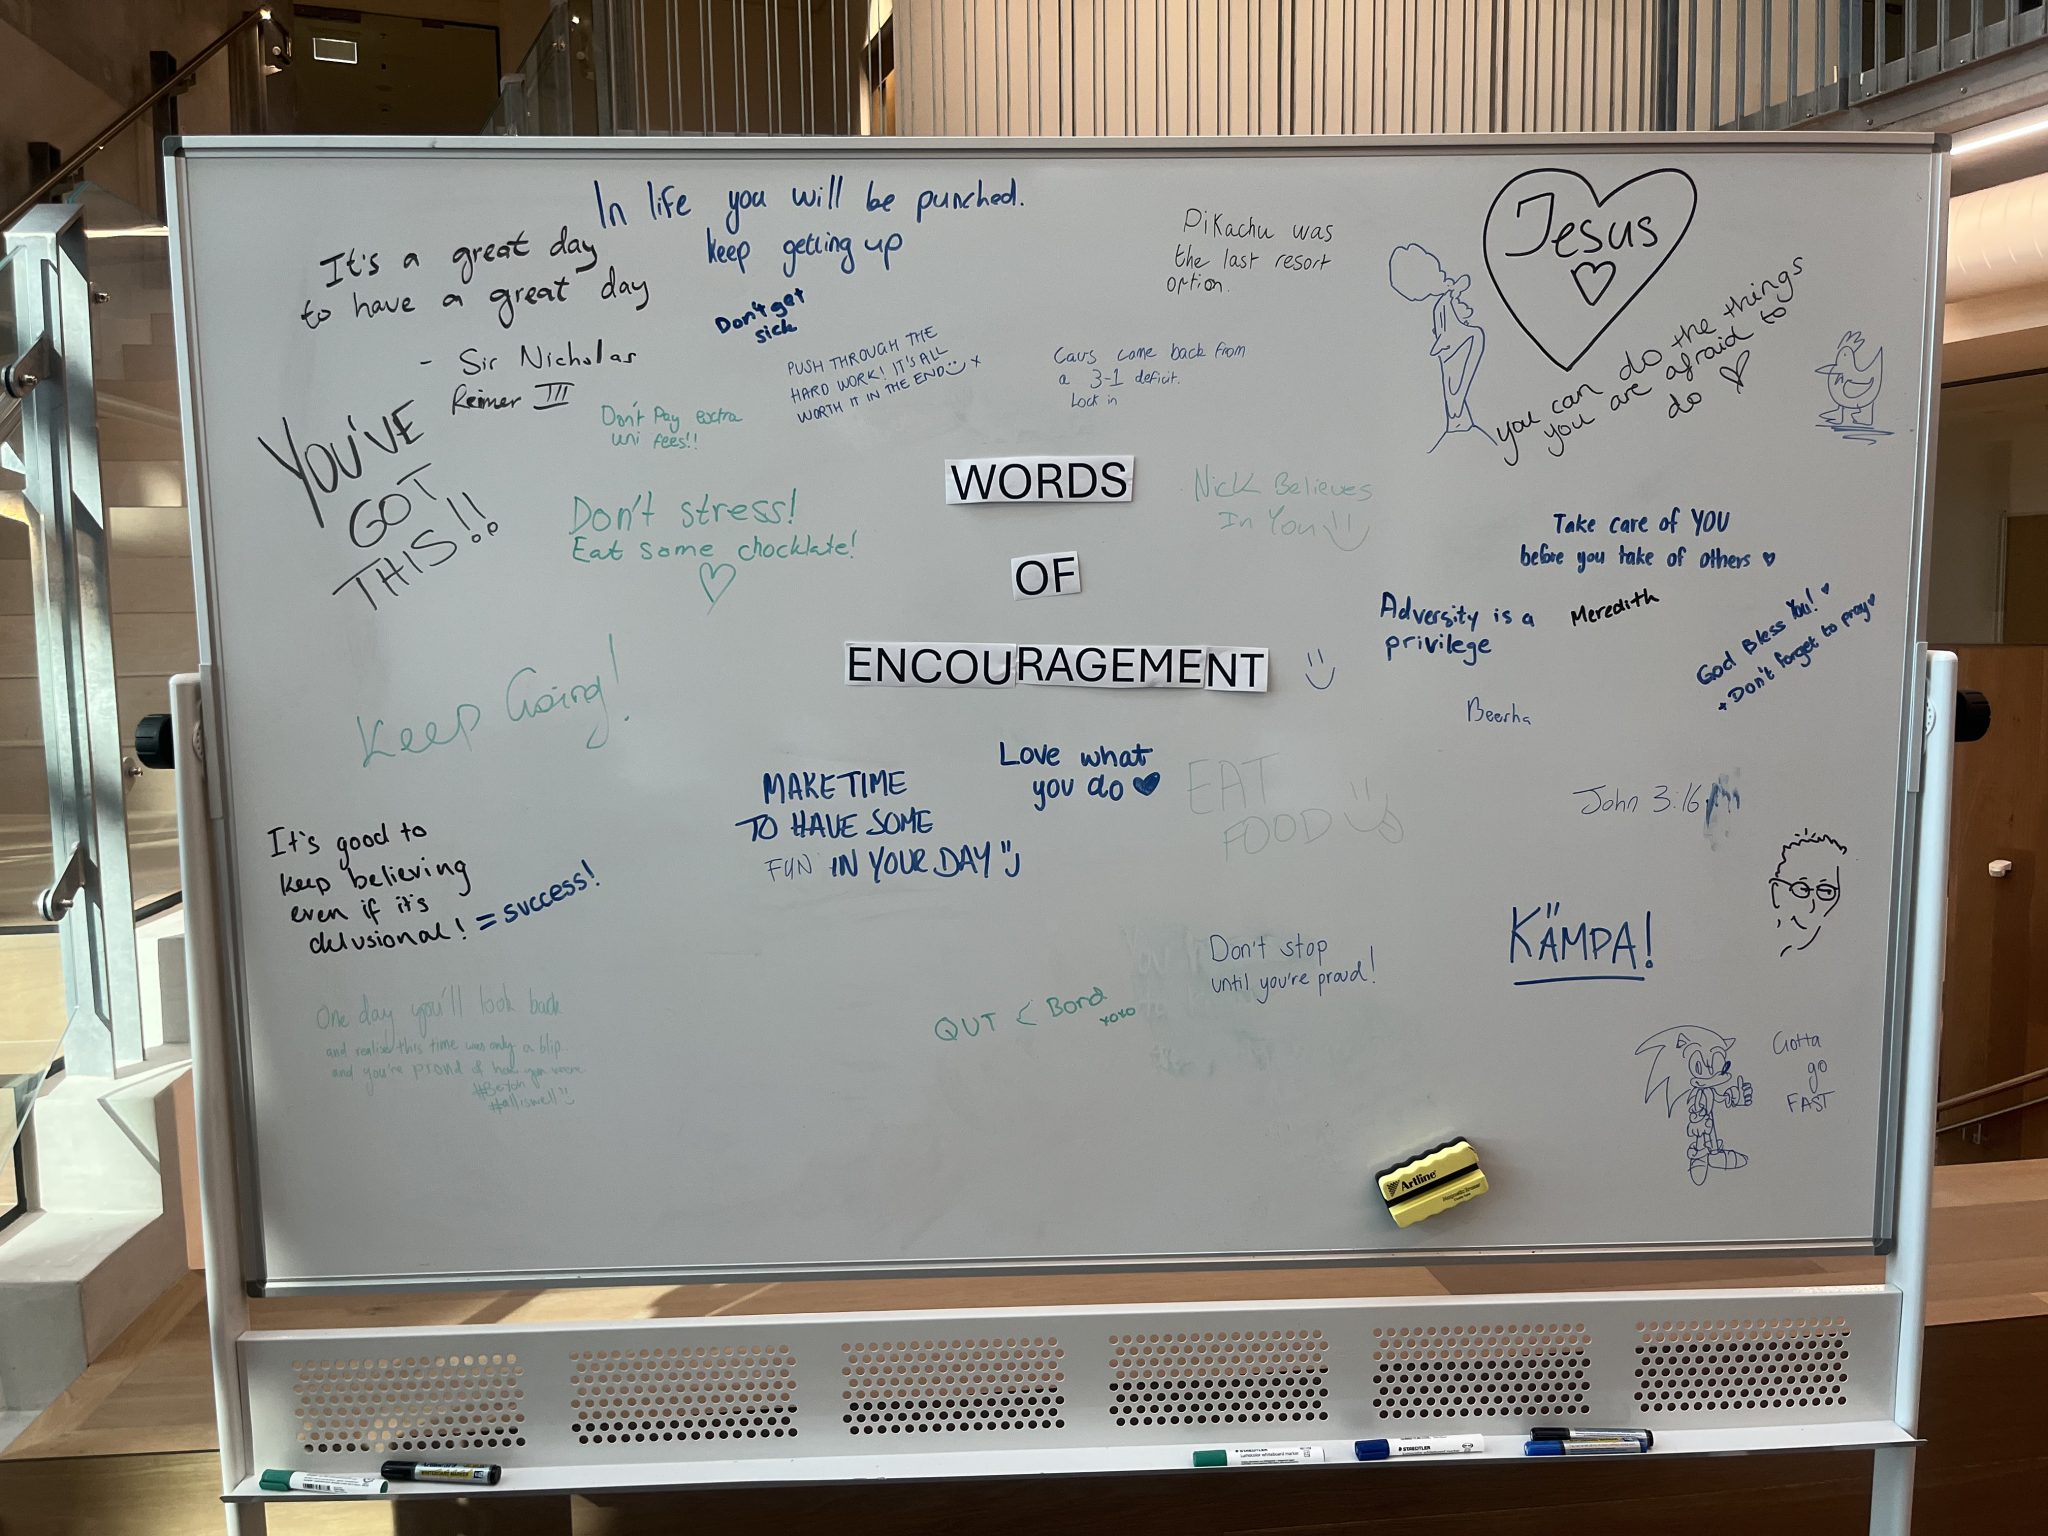 In life you will be punched.
keep getting up
It's a great day
to have a great day
- Sir Nicholas
Reimer III
Don't get
sick
PUSH THROUGH THE
HARD WORK! IT'S ALL
WORTH IT IN THE END x
Pikachu was
the last resort
option.
Cavs come back from
a 3-1 deficit.
Lock in
Jesus
you can do the things
you are afraid to
do
YOU'VE
GOT
THIS!!
Don't Pay extra
uni fees!!
Don't stress!
Eat some chocklate!
WORDS
OF
ENCOURAGEMENT
Nick Believes
In You
Take care of YOU
before you take of others
Adversity is a
privilege
Meredith
God Bless You!
Don't forget to pray
Keep Going!
Love what
you do
MAKE TIME
TO HAVE SOME
FUN IN YOUR DAY
EAT
FOOD
John 3:16
It's good to
keep believing
even if it's
delusional! = success!
KÄMPA!
Don't stop
until you're proud!
QUT < Bond
xoxo
One day you'll look back
and realise this time was only a blip
and you're proud of how you were
#alliswell
Gotta
go
FAST
Artline
STAEDTLER
STAEDTLER